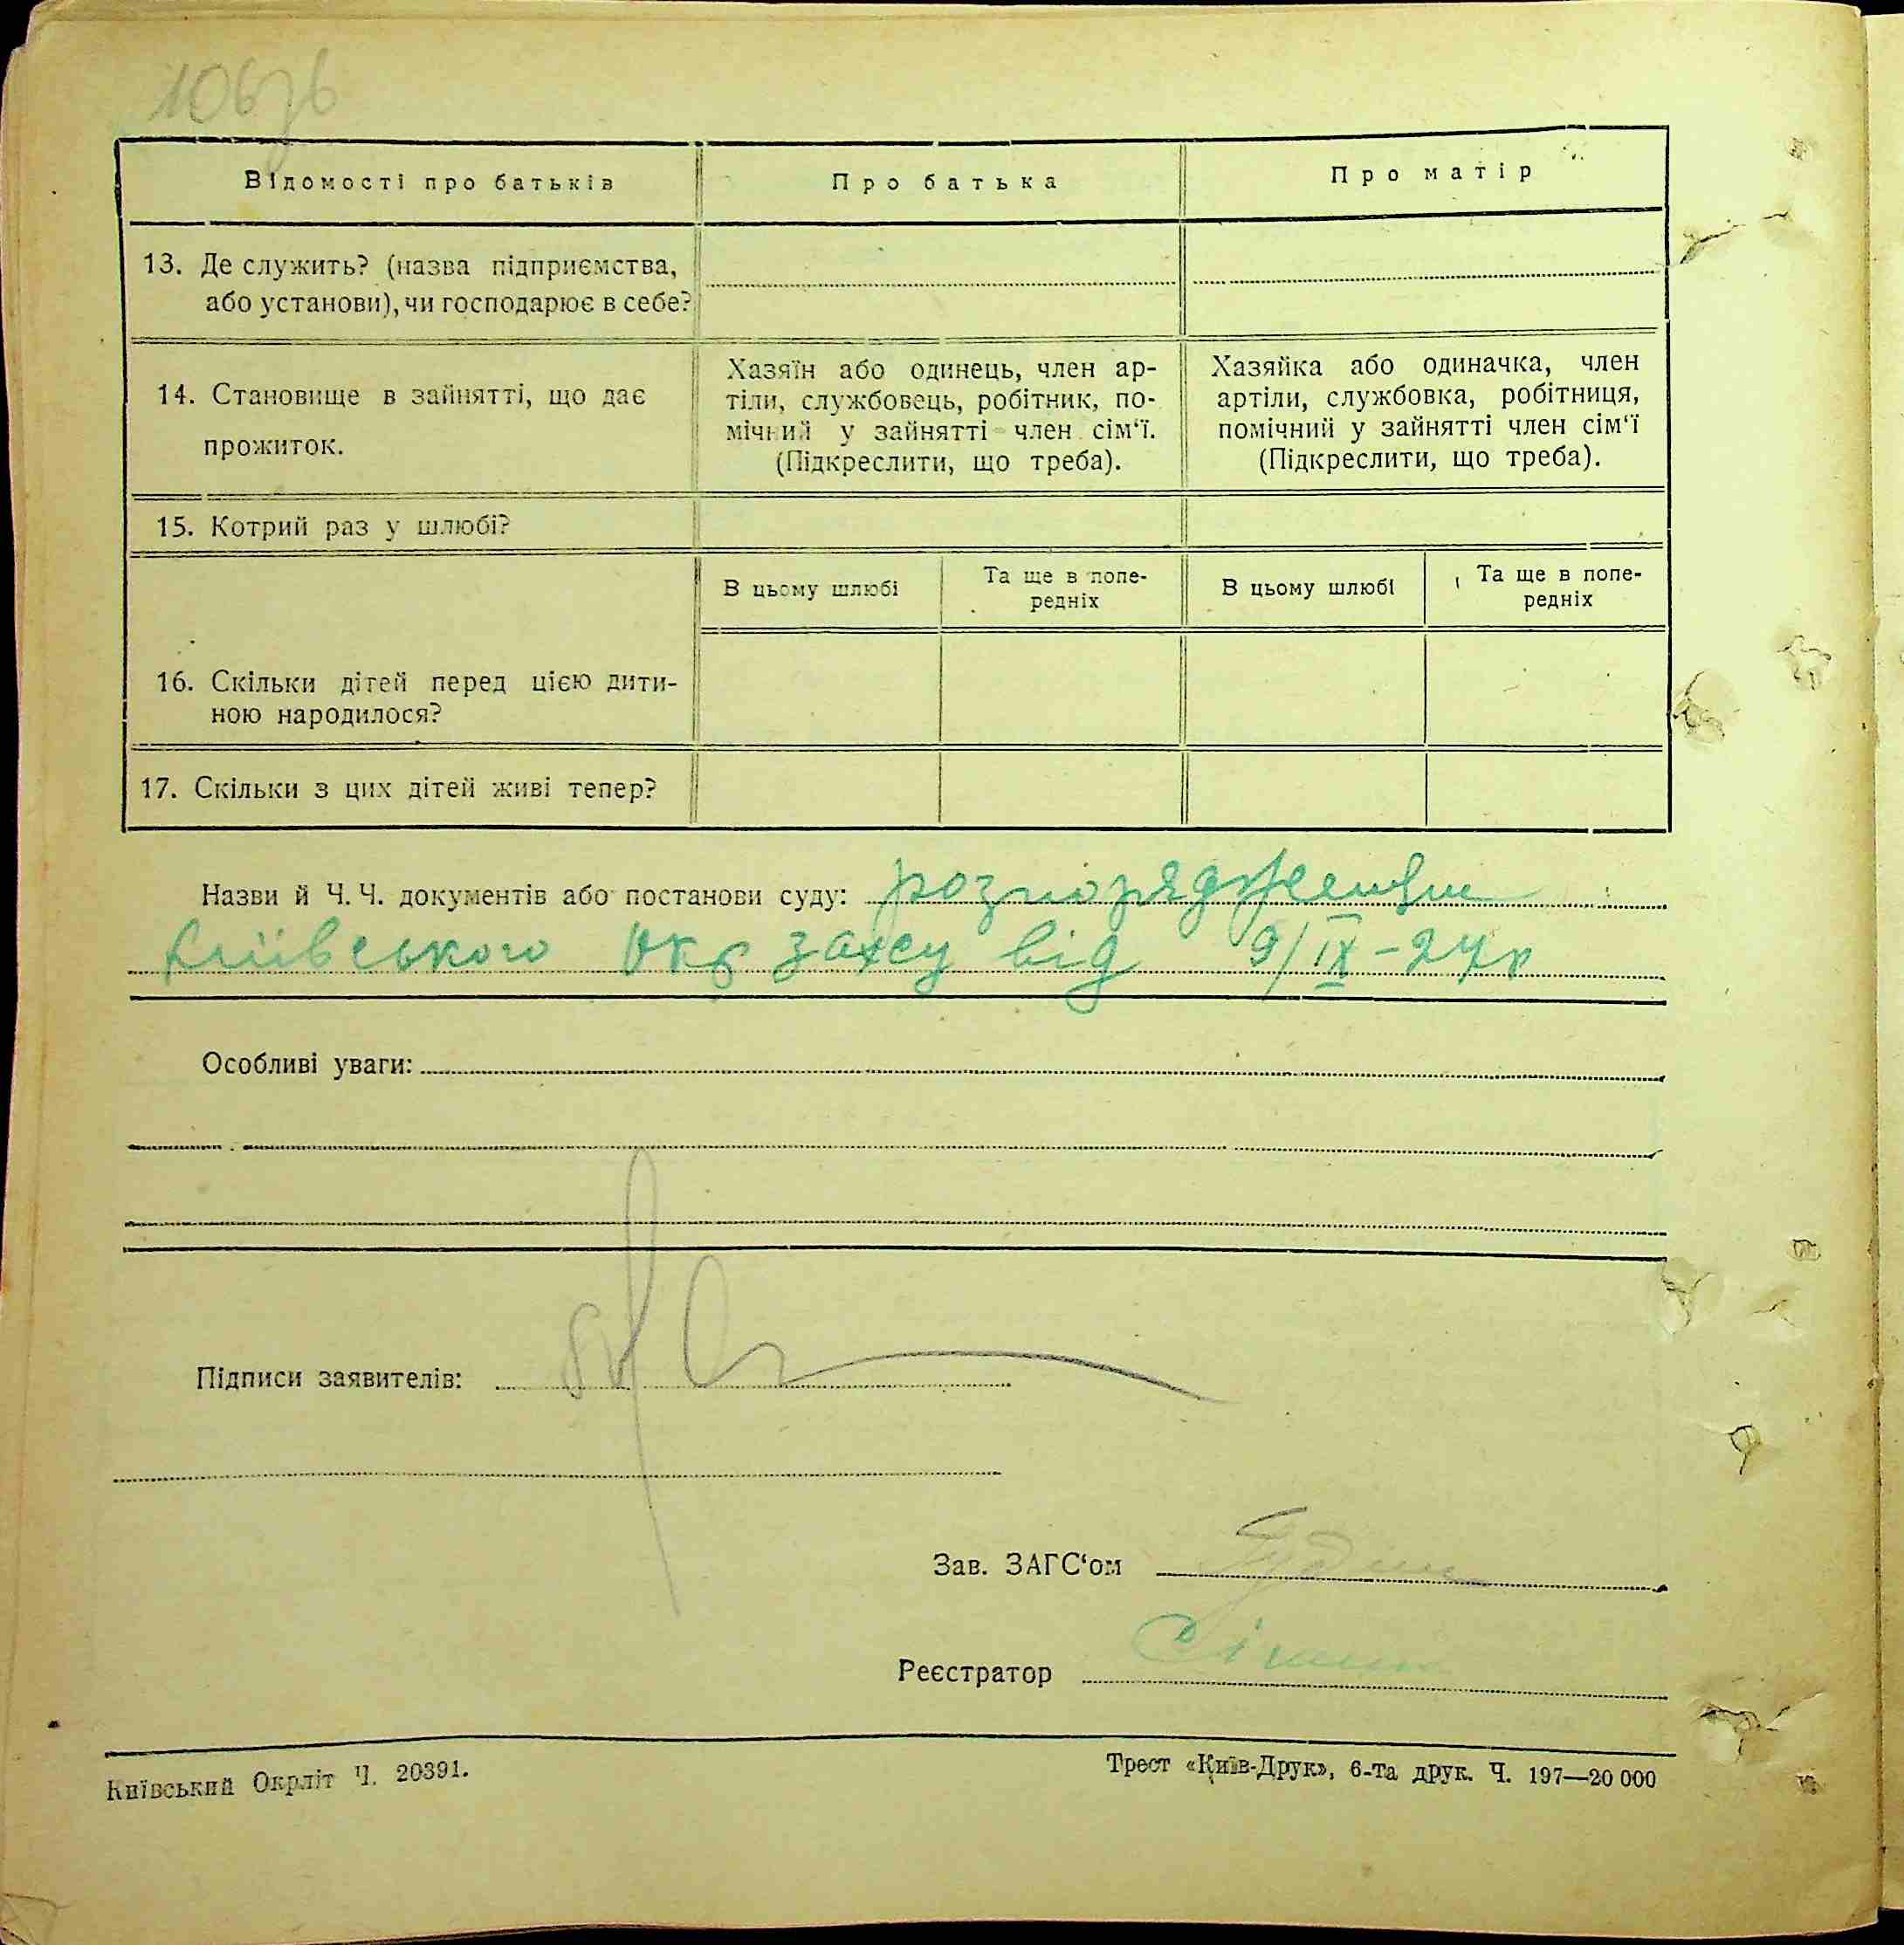 106зв
Відомості про батьків Про батька Про матір
13. Де служить? (назва підприємства,
або установи), чи господарює в себе?
14. Становище в зайнятті, що дає
прожиток.
Хазяїн або одинець, член ар-
тіли, службовець, робітник, по-
мічний у зайнятті член сім‘ї.
(Підкреслити, що треба).
Хазяйка або одиначка, член
артіли, службовка, робітниця,
помічний у зайнятті член сім‘ї
(Підкреслити, що треба).
15. Котрий раз у шлюбі?
В цьому шлюбі
Та ще в попе-
редніх
В цьому шлюбі
Та ще в попе-
редніх
16. Скільки дітей перед цією дити-
ною народилося?
17. Скільки з цих дітей живі тепер?
Назви й Ч. Ч. документів або постанови суду: розпорядження
Київського Окр загсу від 9/ІХ-27р
Особливі уваги:
Підписи заявителів:
Зав. ЗАГС‘ом
Реєстратор
Київський Окрліт Ч. 20391.
Трест «Київ-Друк», 6-та друк. Ч. 197—20 000